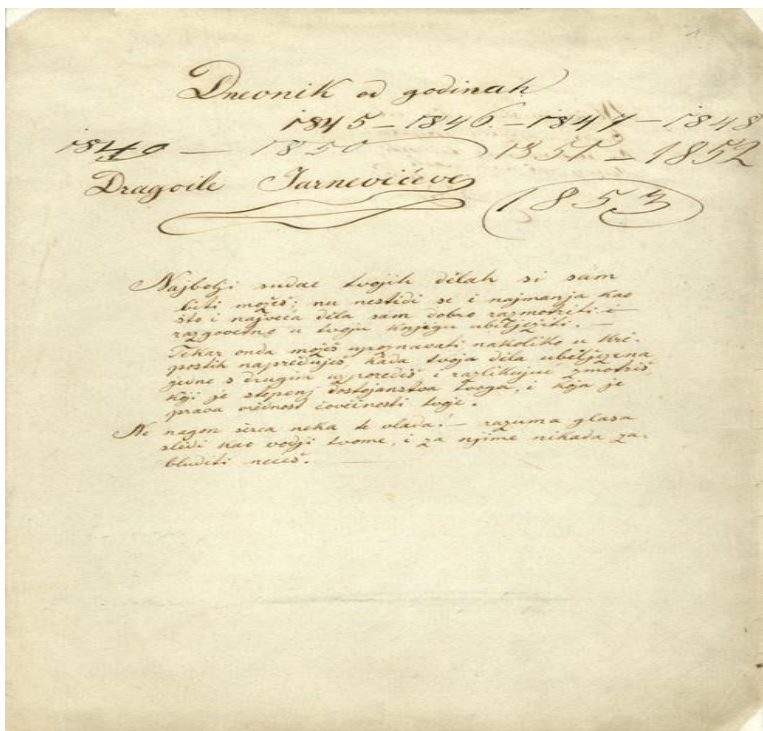 Dnevnik od godinah
1845 – 1846 – 1847 – 1848
1849 — 1850 1851 – 1852
Dragoile Jarnevićeve 1853
Najbolji sudac tvojih dělah si sám
biti možeš; nu nestidi se i najmanja kao
što i najveća děla sam dobro razmotriti i
razgovetno u tvoju knjigu ubilježiti. —
Tekar onda moješ upoznavati nakoliko u kré-
postih napreduješ kada tvoja děla ubilježena
jedne s drugim usporediš i razlikujuć smotriš,
koji je stepenj dostojanstva tvoga, i koja je
prava vrědnost čověčnosti tvoje.
Ne nagon sérca neka te vlada! — razuma glasa
slědi kao vodji tvome, i za njime nikada za-
bluditi nećeš. —